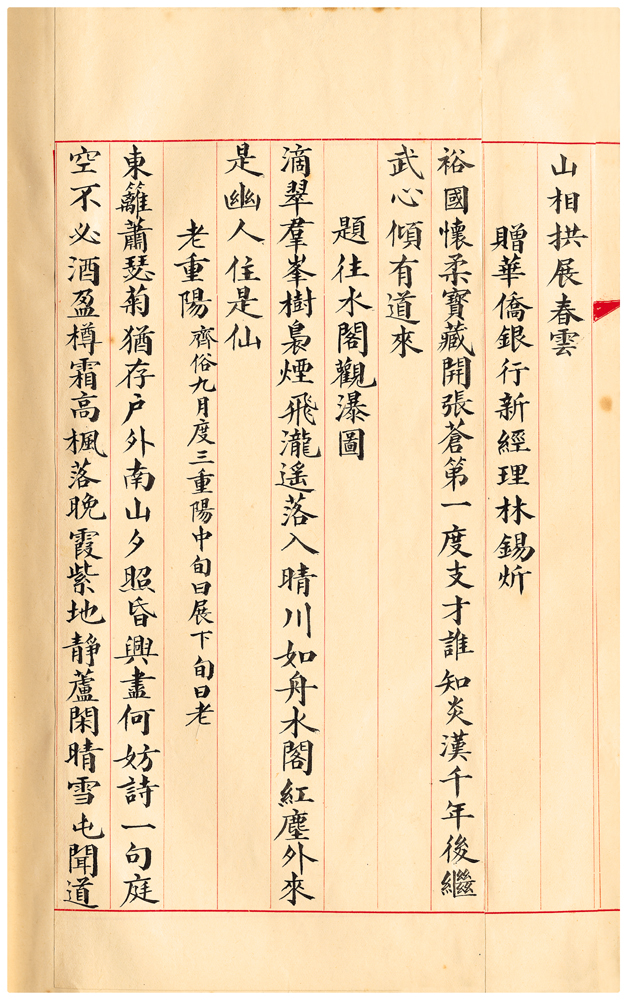 山相拱展春雲
贈華僑銀行新經理林錫炘
裕國懷柔寶藏開張蒼第一度支才誰知炎漢千年後繼
武心傾有道來
題往水閣觀瀑圖
滴翠羣峯樹裊煙飛瀧遙落入晴川如舟水閣紅塵外來
是幽人住是仙
老重陽 齊俗九月度三重陽中旬曰展下旬曰老
東籬蕭瑟菊猶存戶外南山夕照昏興盡何妨詩一句庭
空不必酒盈樽霜高楓落晚霞紫地靜蘆閑晴雪屯聞道